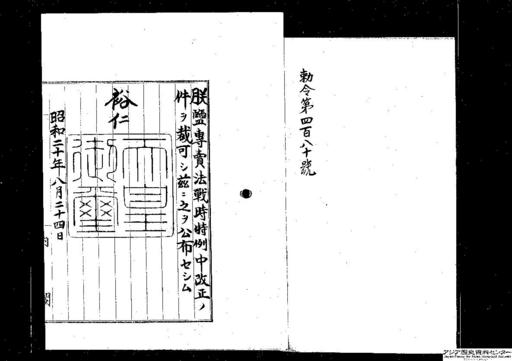 勅令第四百八十號
朕鹽專賣法戰時特例中改正ノ
件ヲ裁可シ茲ニ之ヲ公布セシム
裕仁
天皇御璽
昭和二十年八月二十四日
内閣
アジア歴史資料センター